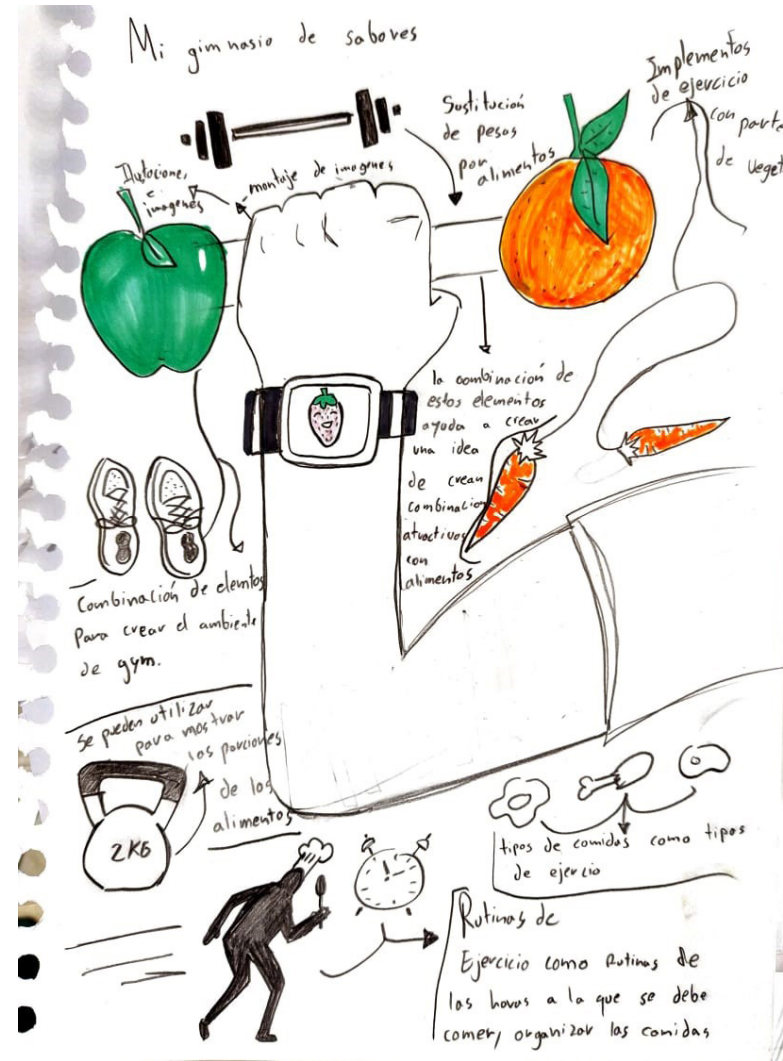 Mi gimnasio de sabores
Implementos
de ejercicio
con parte
de veget
Sustitución
de pesas
por
alimentos
montaje de imagenes
e
imagenes
la combinación de
estos elementos
ayuda a crear
una idea
de crean
combinacion
atractivos
con
alimentos
Combinación de elemtos
para crear el ambiente
de gym.
se pueden utilizar
para mostrar
las porciones
de los
alimentos
2KG
tipos de comidas como tipos
de ejercio
Rutinas de
Ejercicio como Rutinas de
las horas a la que se debe
comer, organizar las comidas